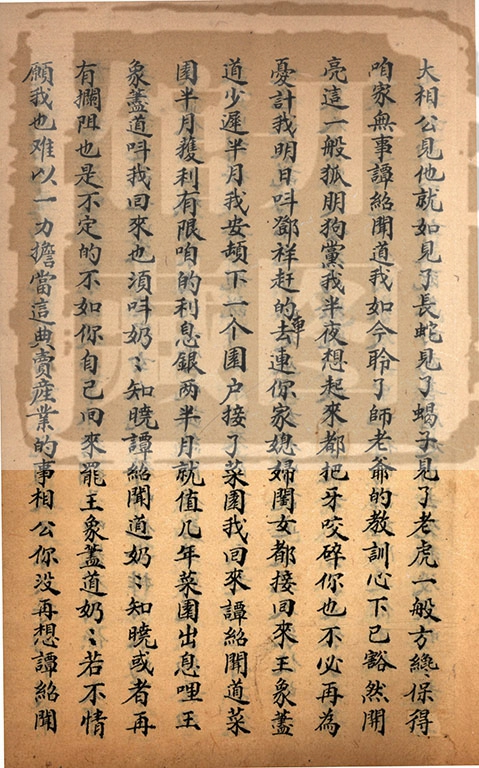 大相公見他就如見了長蛇見了蝎子見了老虎一般方纔保得
咱家無事譚紹聞道我如今聆了師老爺的教訓心下已豁然開
亮這一般狐朋狗黨我半夜想起來都把牙咬碎你也不必再為
憂計我明日呌鄧祥赶的車去連你家媳婦閨女都接回來王象藎
道少遲半月我安頓下一个園户接了菜園我回來譚紹聞道菜
園半月獲利有限咱的利息銀两半月就值几年菜園出息哩王
象藎道呌我回來也須呌奶〻知曉譚紹聞道奶〻知曉或者再
有攔阻也是不定的不如你自己回來罷王象藎道奶〻若不情
願我也难以一力擔當這典賣産業的事相公你没再想譚紹聞